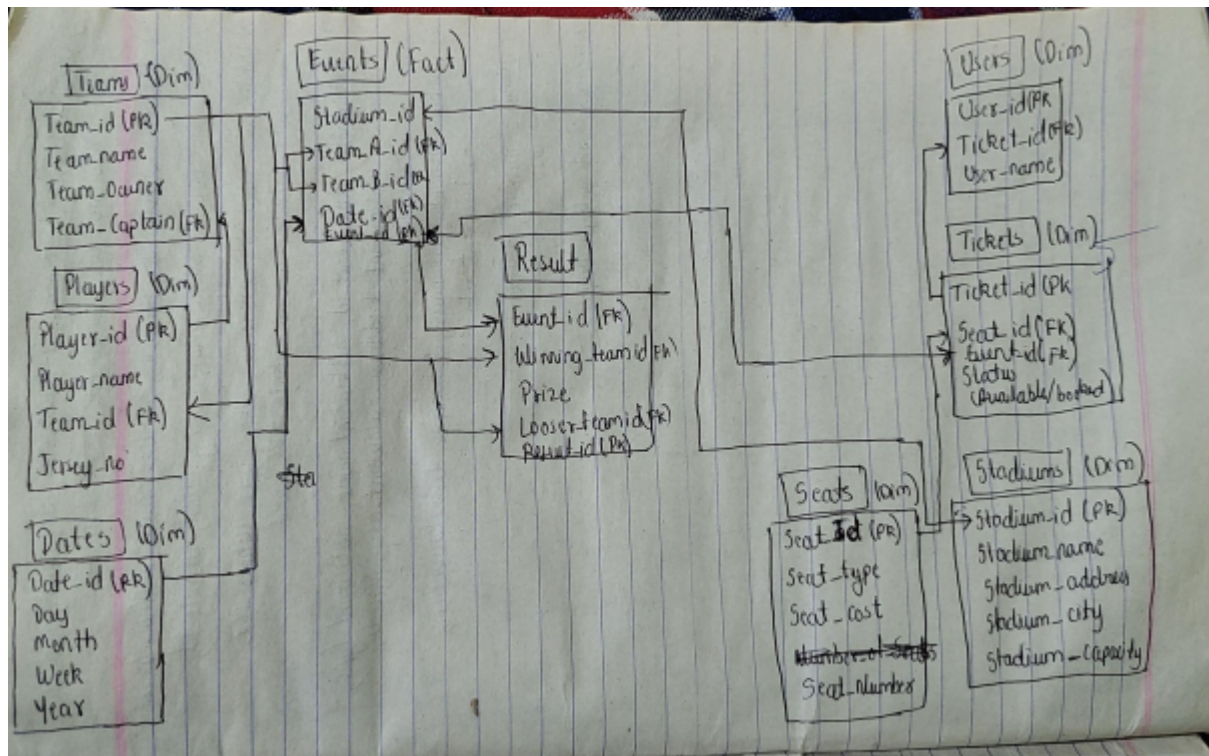 Teams (Dim)
Team_id (PK)
Team_name
Team_Owner
Team_Captain (FK)
Players (Dim)
Player_id (PK)
Player_name
Team_id (FK)
Jersey_no
Dates (Dim)
Date_id (PK)
Day
Month
Week
Year
Events (Fact)
Stadium_id
Team_A_id (FK)
Team_B_id
Date_id (FK)
Event_id (PK)
Result
Event_id (FK)
Winning_team_id (FK)
Prize
Looser_team_id (FK)
Result_id (PK)
Sta
Users (Dim)
User_id (PK
Ticket_id (FK)
User_name
Tickets (Dim)
Ticket_id (PK
Seat_id (FK)
Event_id (FK)
Status
(Available/booked)
Seats (Dim)
Seat_Id (PK)
Seat_type
Seat_cost
Number_of_Seats
Seat_Number
Stadiums (Dim)
Stadium_id (PK)
Stadium_name
Stadium_address
Stadium_city
Stadium_Capacity